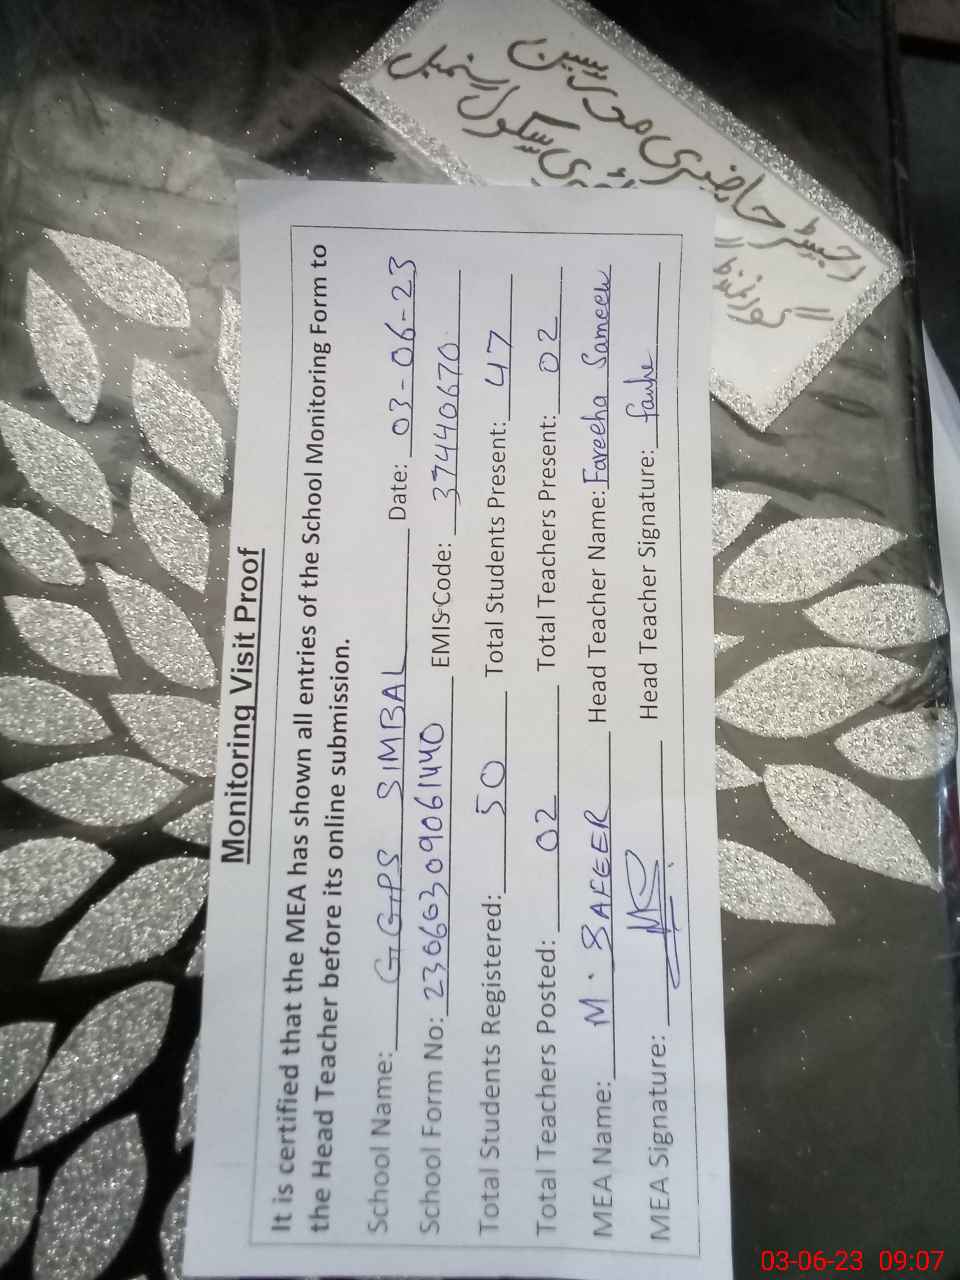 رجسٹر حاضری مدرسین
سکول سنمبل
Monitoring Visit Proof
It is certified that the MEA has shown all entries of the School Monitoring Form to
the Head Teacher before its online submission.
School Name: GGPS SIMBAL Date: 03-06-23
School Form No: 23066309061440 EMIS Code: 37440670
Total Students Registered: 50 Total Students Present: 47
Total Teachers Posted: 02 Total Teachers Present: 02
MEA Name: M. SAFEER Head Teacher Name: Fareeha Sameen
MEA Signature: Head Teacher Signature:
03-06-23 09:07